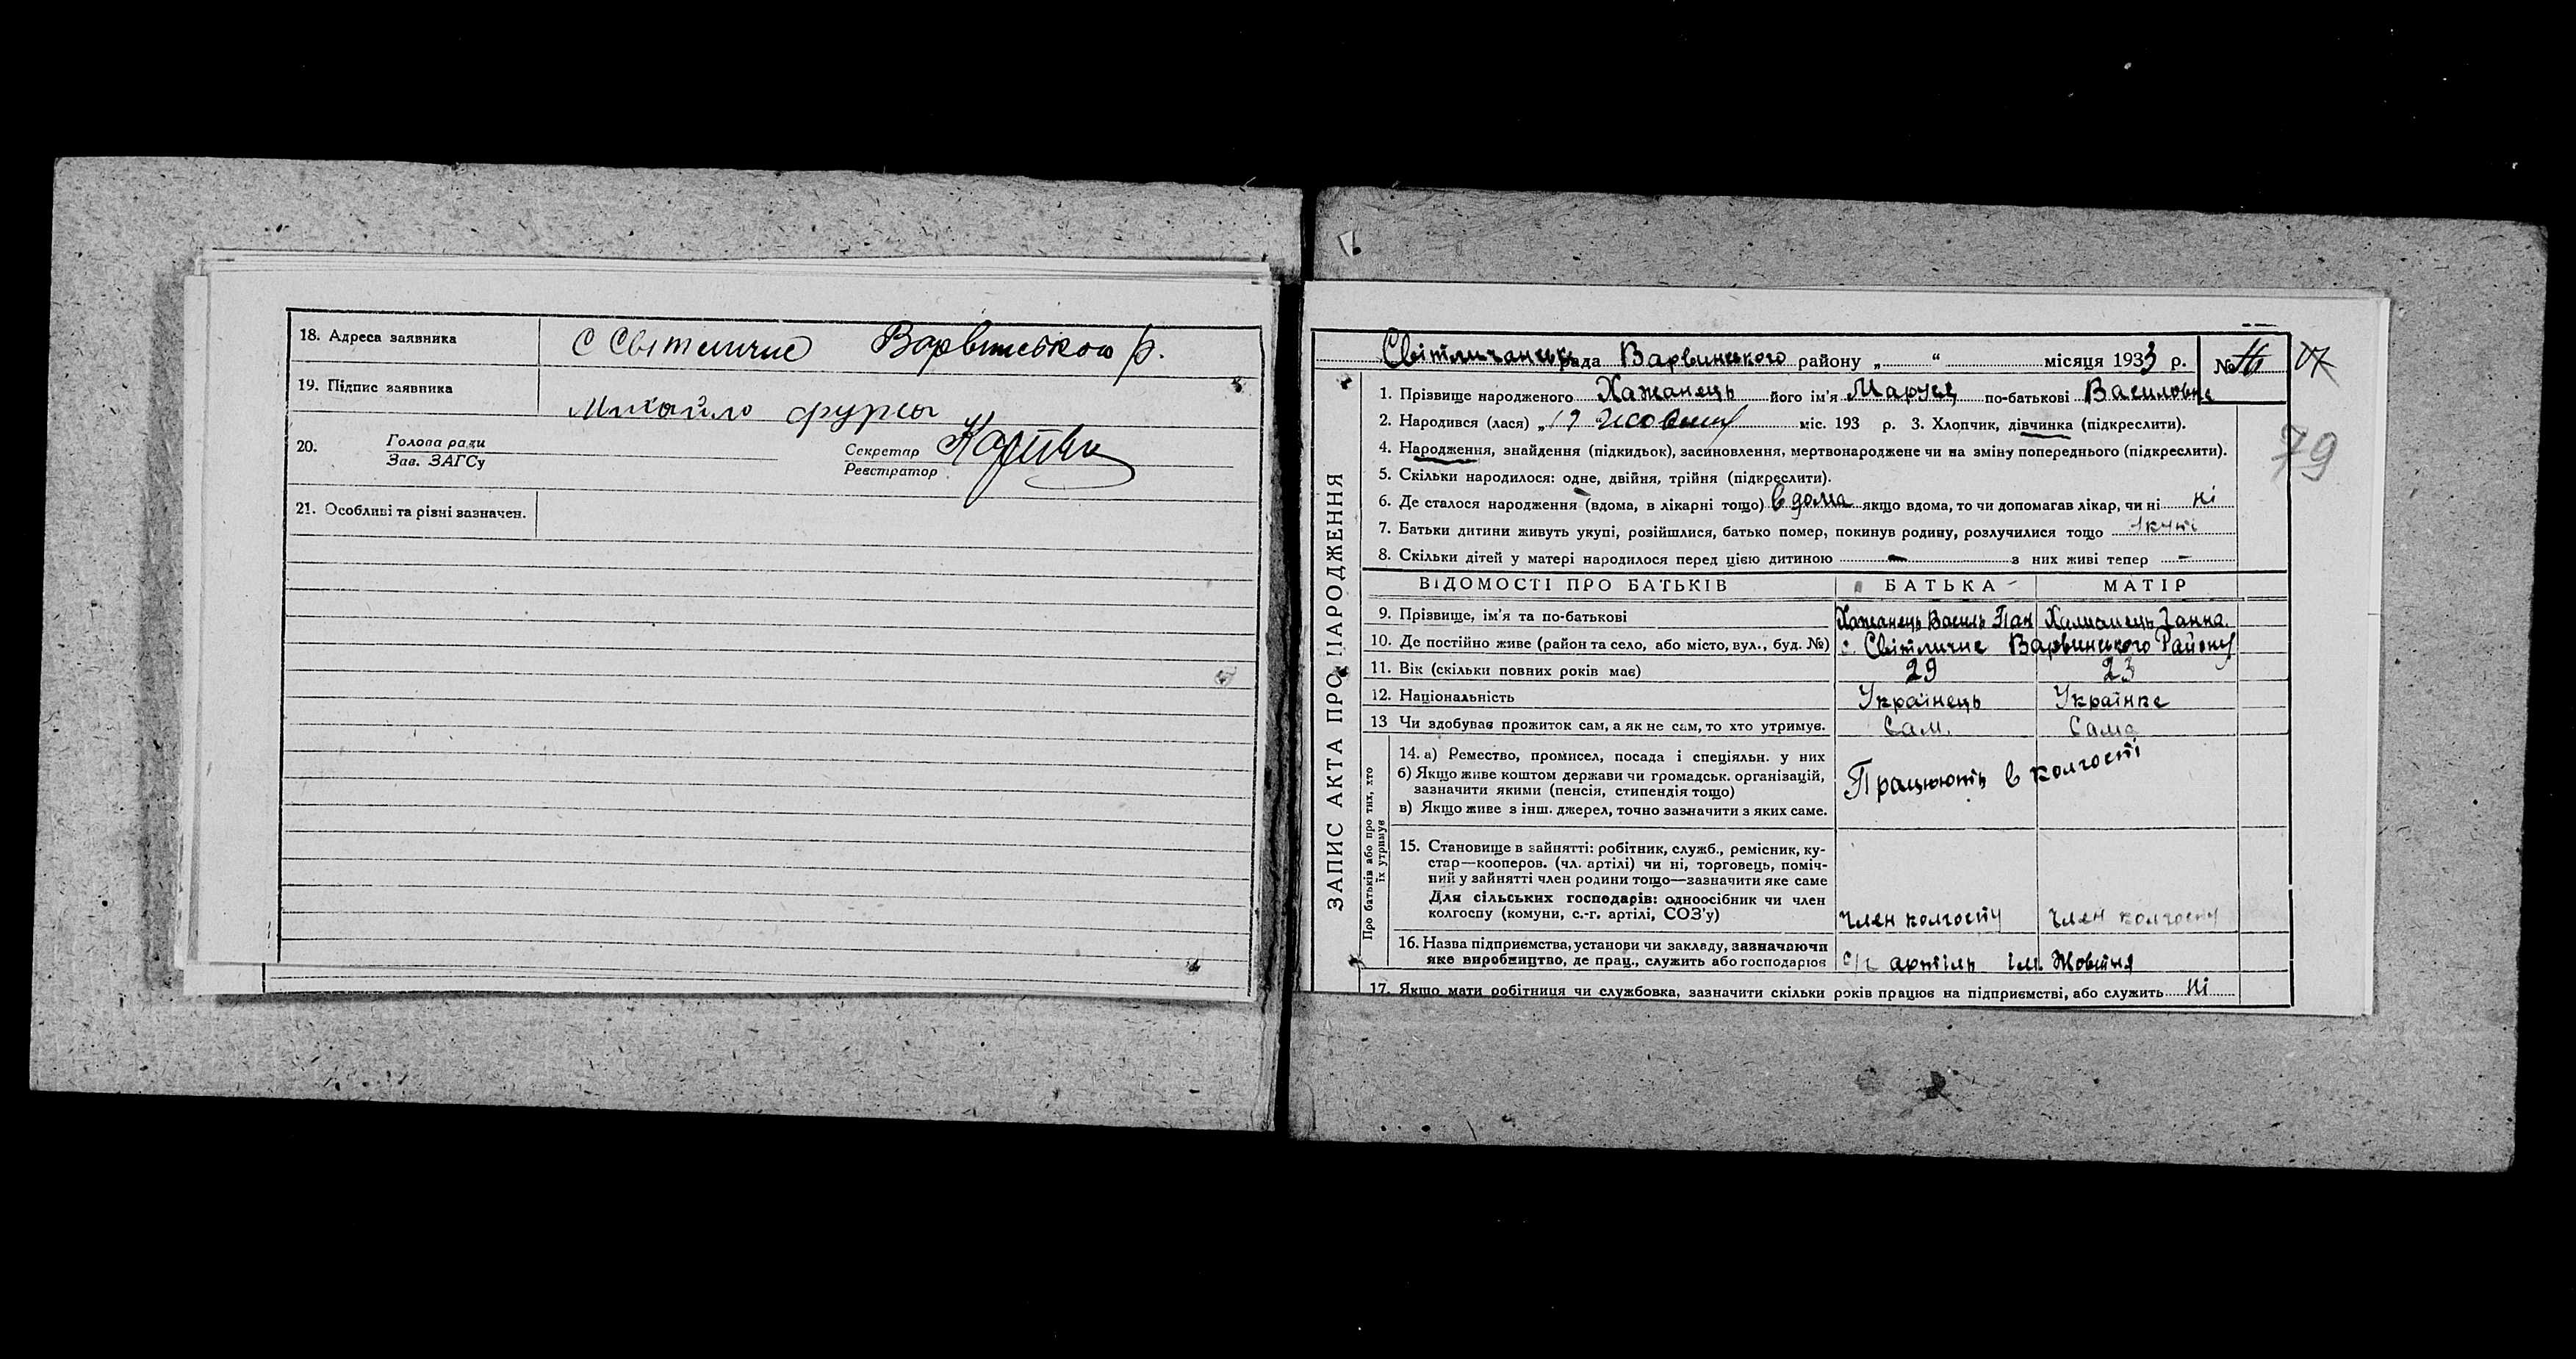 18. Адреса заявника С Світличне Варвинського р.
19. Підпис заявника Михайло фурсы
20. Голова ради
Зав. ЗАГСу
Секретар
Реєстратор
21. Особливі та різні зазначен.
Світличанська рада Варвинського району „ “ місяця 1933 р. №
79
ЗАПИС АКТА ПРО НАРОДЖЕННЯ
1. Прізвище народженого Хажанець його ім'я Маруся по-батькові Василовне
2. Народився (лася) „19 міс. 193 р. 3. Хлопчик, дівчинка (підкреслити).
4. Народження, знайдення (підкидьок), засиновлення, мертвонароджене чи на зміну попереднього (підкреслити).
5. Скільки народилося: одне, двійня, трійня (підкреслити).
6. Де сталося народження (вдома, в лікарні тощо) вдома якщо вдома, то чи допомагав лікар, чи ні ні
7. Батьки дитини живуть укупі, розійшлися, батько помер, покинув родину, розлучилися тощо
8. Скільки дітей у матері народилося перед цією дитиною — з них живі тепер —
ВІДОМОСТІ ПРО БАТЬКІВ БАТЬКА МАТІР
9. Прізвище, ім'я та по-батькові Хажанець Василь Пан Хажанець Ганна
10. Де постійно живе (район та село, або місто, вул., буд. №) с Світличне Варвинського Району
11. Вік (скільки повних років має) 29 23
12. Національність Українець Українке
13 Чи здобуває прожиток сам, а як не сам, то хто утримує. Сам. Сама
Про батьків або про тих, хто
їх утримує
14. а) Ремество, промисел, посада і спеціяльн. у них
б) Якщо живе коштом держави чи громадськ. організацій,
зазначити якими (пенсія, стипендія тощо)
в) Якщо живе з інш. джерел, точно зазначити з яких саме.
Працюють в колгоспі
15. Становище в зайнятті: робітник, служб., ремісник, ку-
стар—кооперов. (чл. артілі) чи ні, торговець, поміч-
ний у зайнятті член родини тощо—зазначити яке саме
Для сільських господарів: одноосібник чи член
колгоспу (комуни, с.-г. артілі, СОЗ'у) член колгоспу член колгоспу
16. Назва підприємства, установи чи закладу, зазначаючи
яке виробництво, де прац., служить або господарює с/г артіль ім. Жовтня
17. Якщо мати робітниця чи службовка, зазначити скільки років працює на підприємстві, або служить ні